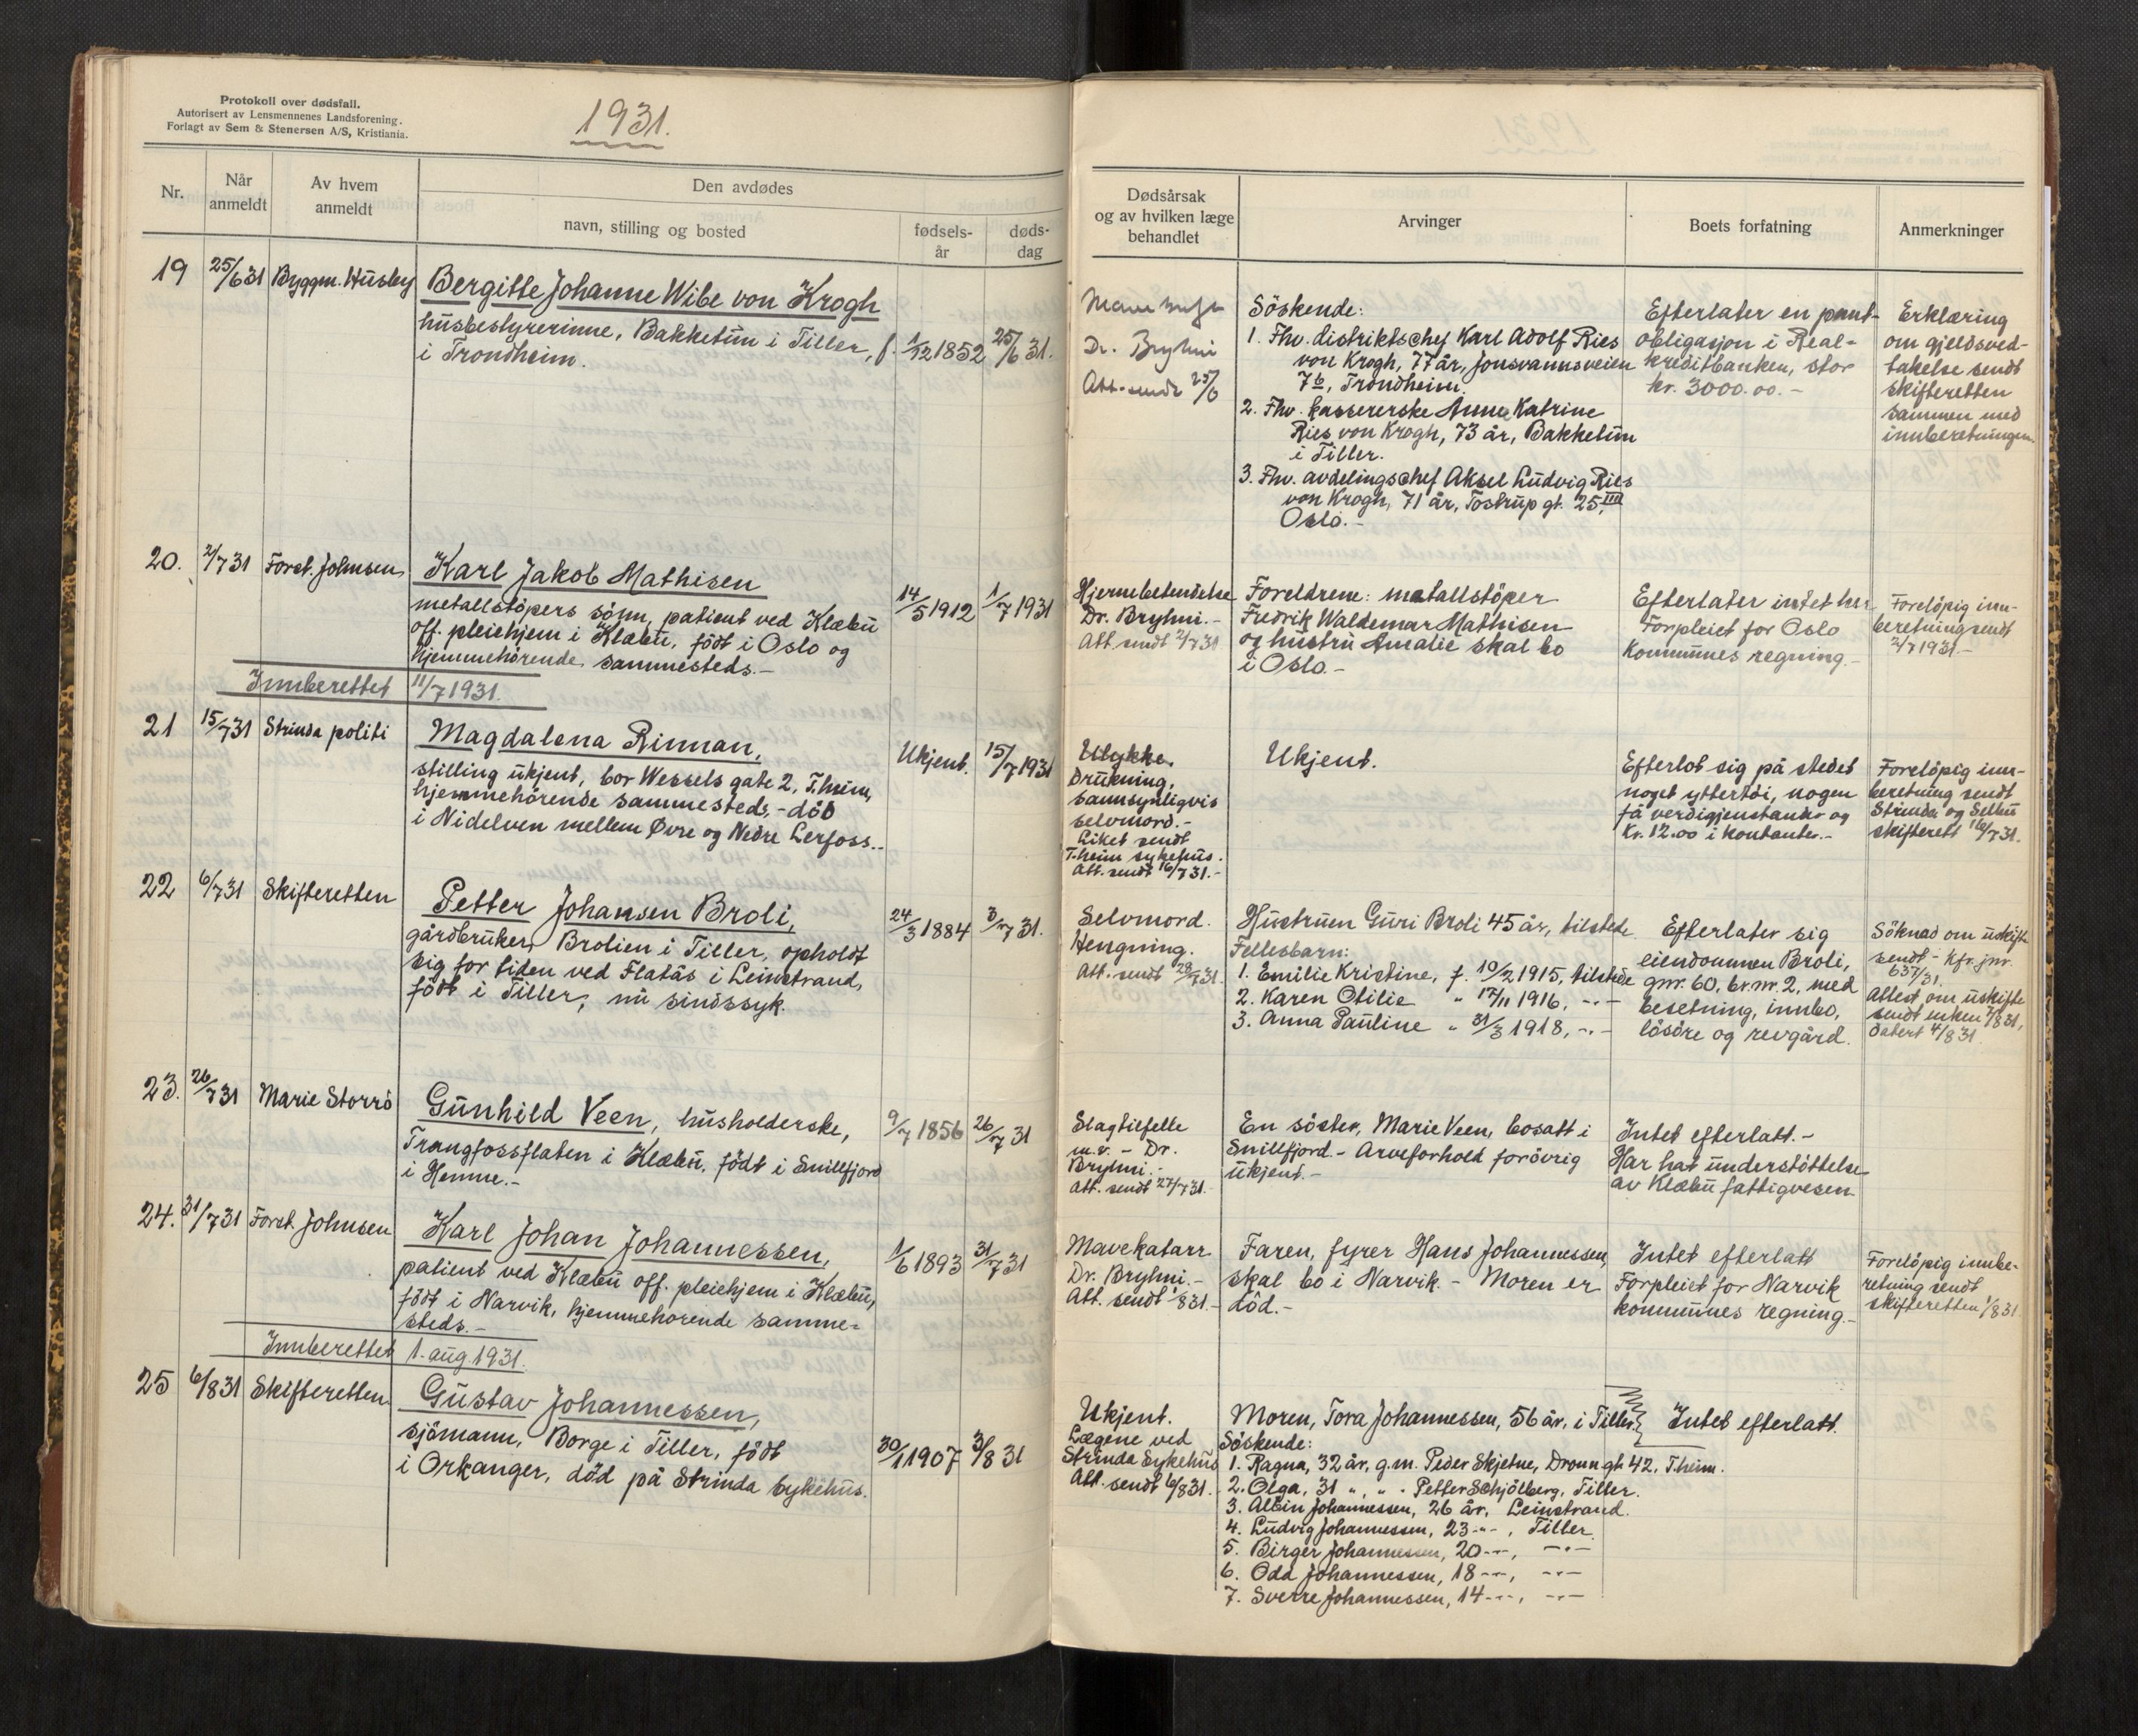 Protokoll over dødsfall.
Autorisert av Lensmennenes Landsforening.
Forlagt av Sem & Stenersen A/S, Kristiania.
1931.
Nr.
Når anmeldt
Av hvem anmeldt
Den avdødes
navn, stilling og bosted
fødsels-
år
døds-
dag
19 25/6 31 Byggm. Husby
Bergitte Johanne Wibe von Krogh
husbestyrerinne, Bakketun i Tiller, f. 1/12 1852 25/6 31.
i Trondheim.
20. 2/7 31 Forst. Johnsen
Karl Jakob Mathisen
metallstöpers sönn, patient ved Klæbu 14/5 1912 1/7 1931
off. pleiehjem i Klæbu, födt i Oslo og
hjemmehörende sammesteds.-
Innberettet 11/7 1931.
21 15/7 31 Strinda politi
Magdalena Rinnan,
Ukjent. 15/7 1931
stilling ukjent, bor Wessels gate 2, T.heim,
hjemmehörende sammesteds, - död
i Nidelven mellem Øvre og Nedre Lerfoss..
22 6/7 31 Skifteretten
Petter Johansen Broli,
24/3 1884 3/7 31.
gårdbruker, Brolien i Tiller, opholdt
sig for tiden ved Flatås i Leinstrand,
födt i Tiller, nu sindssyk.
23. 26/7 31 Marie Storrö
Gunhild Veen, husholderske, 9/7 1856 26/7 31
Trangfossflaten i Klæbu, födt i Snillfjord
i Hemne.-
24. 31/7 31 Forst. Johnsen
Karl Johan Johannessen,
1/6 1893 31/7 31
patient ved Klæbu off. pleiehjem i Klæbu,
födt i Narvik, hjemmehörende samme-
steds.-
Innberettet 1. aug 1931.
25 6/8 31 Skifteretten
Gustav Johannessen,
sjömann, Borge i Tiller, födt 30/1 1907 3/8 31
i Orkanger, död på Strinda sykehus.
Dødsårsak
og av hvilken læge
behandlet
Arvinger
Boets forfatning
Anmerkninger
Dr. Bryhni
Att. sendt 25/6
Söskende:
1. Fhv. distriktschef Karl Adolf Ries
von Krogh, 77 år, Jonsvannsveien
7b, Trondheim
2. Fhv. kassererske Anne Katrine
Ries von Krogh, 73 år, Bakketun
i Tiller.
3. Fhv. avdelingschef Aksel Ludvig Ries
von Krogh, 71 år, Tostrup gt. 25, III
Oslo.-
Efterlater en pant-
obligasjon i Real-
kreditbanken, stor
kr. 3000.00.-
Erklæring
om gjeldsved-
takelse sendt
skifteretten
sammen med
innberetningen.
Hjernebetendelse
Dr. Bryhni.-
Att. sendt 2/7 31
Foreldrene: metallstöper
Fredrik Waldemar Mathisen
og hustru Amalie skal bo
i Oslo.-
Efterlater intet her
Forpleiet for Oslo
Kommunes regning.-
Forelöpig inn-
beretning sendt
2/7 1931.-
Ulykke.
Drukning,
sannsynligvis
selvmord.-
Liket sendt
T.heim sykehus.
Att. sendt 16/7 31.-
Ukjent.
Efterlot sig på stedet
noget yttertöi, nogen
få verdigjenstander og
Kr. 12.00 i kontanter.-
Forelöpig inn-
beretning sendt
Strinda og Selbu
skifterett 16/7 31.
Selvmord.
Hengning.
Att. sendt 28/7 31.
Hustruen Guri Broli 45 år, tilstede
Fellesbarn:
1. Emilie Kristine, f. 10/2 1915, tilstede
2. Karen Otilie " 17/11 1916, -"-
3. Anna Pauline " 31/3 1918, -"-
Efterlater sig
eiendommen Broli,
gnr. 60, br.nr. 2, med
besetning, innbo,
lösöre og revgård.
Söknad om uskifte
sendt - kfr. jnr.
657/31.
Attest om uskifte
sendt enken 7/8 31,
datert 4/8 31.
Slagtilfelle
m.v. - Dr.
Bryhni.-
Att. sendt 27/7 31.-
En söster, Marie Veen, bosatt i
Snillfjord.- Arveforhold forövrig
ukjent.-
Intet efterlatt.-
Har hat understöttelse
av Klæbu fattigvesen.
Mavekatarr
Dr. Bryhni.-
Att. sendt 1/8 31.-
Faren, fyrer Hans Johannessen,
skal bo i Narvik. - Moren er
död.-
Intet efterlatt
Forpleiet for Narvik
kommunes regning.-
Forelöpig innbe-
retning sendt
skifteretten 1/8 31.
Ukjent.
Lægene ved
Strinda Sykehus
Att. sendt 6/8 31.
Moren, Tora Johannessen, 56 år, i Tiller.
Söskende:
1. Ragna, 32 år, g.m. Peder Skjetne, Dronn.gt 42, T.heim.
2. Olga, 31 " , " - Petter Schjölberg, Tiller.
3. Albin Johannessen, 26 år, Leinstrand.
4. Ludvig Johannessen, 23 -"-, Tiller.
5. Birger Johannessen, 20 -"-, -"-
6. Odd Johannessen, 18 -"-, -"-
7. Sverre Johannessen, 14 -"-, -"-
Intet efterlatt.